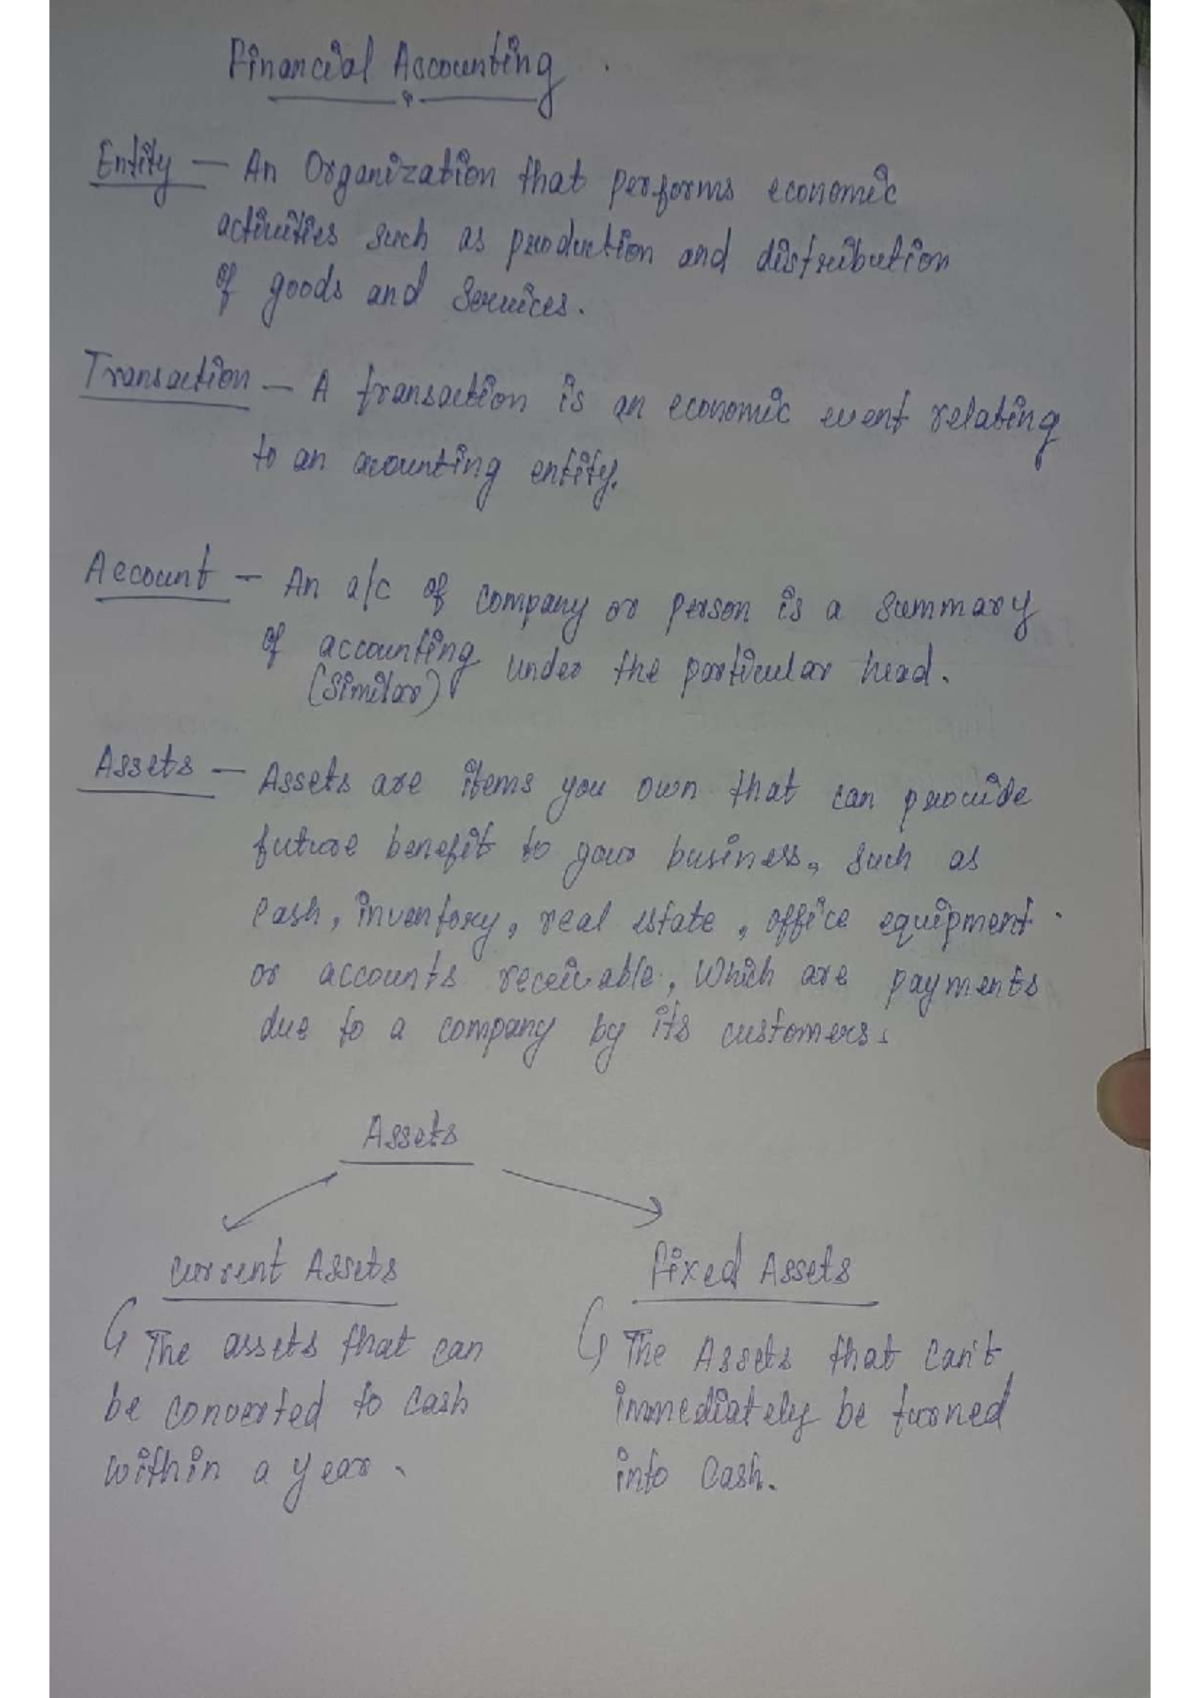 Financial Accounting
Entity — An Organization that performs economic
activities such as production and distribution
of goods and services.
Transaction — A transaction is an economic event relating
to an acounting entity.
Account — An a/c of company or person is a summary
of accounting under the particular head.
(Similar)
Assets — Assets are items you own that can provide
future benefit to your business, such as
cash, inventory, real estate, office equipment
or accounts receivable, which are payments
due to a company by its customers.
Assets
Current Assets
Fixed Assets
The assets that can
be converted to cash
within a year.
The Assets that can't
immediately be turned
into cash.